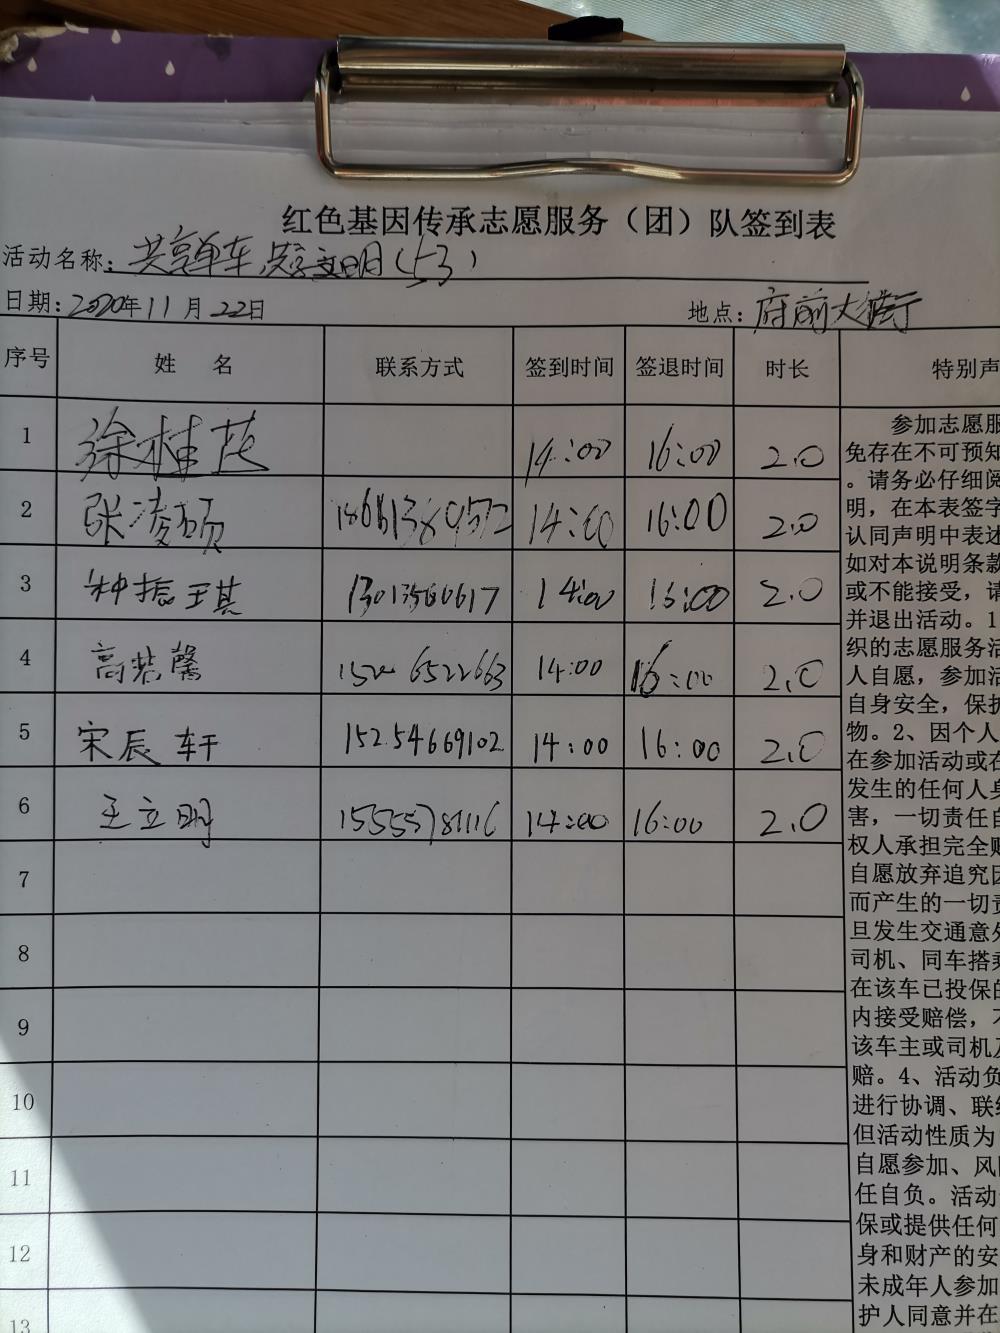 红色基因传承志愿服务（团）队签到表
活动名称：共享单车 共享文明（53）
日期：2020年11月22日 地点：府前大街
序号 姓名 联系方式 签到时间 签退时间 时长 特别声
1 徐桂芝 14:00 16:00 2.0
2 张凌硕 14:00 16:00 2.0
3 种振琪 13013560617 14:00 16:00 2.0
4 高若馨 6522663 14:00 16:00 2.0
5 宋辰轩 15254669102 14:00 16:00 2.0
6 王立明 14:00 16:00 2.0
7
8
9
10
11
12
13
参加志愿服
免存在不可预知
。请务必仔细阅
明，在本表签字
认同声明中表述
如对本说明条款
或不能接受，请
并退出活动。1
织的志愿服务活
人自愿，参加活
自身安全，保护
物。2、因个人
在参加活动或在
发生的任何人身
害，一切责任自
权人承担完全赔
自愿放弃追究因
而产生的一切责
旦发生交通意外
司机、同车搭乘
在该车已投保的
内接受赔偿，不
该车主或司机及
赔。4、活动负
进行协调、联络
但活动性质为
自愿参加、风险
任自负。活动
保或提供任何
身和财产的安
未成年人参加
护人同意并在